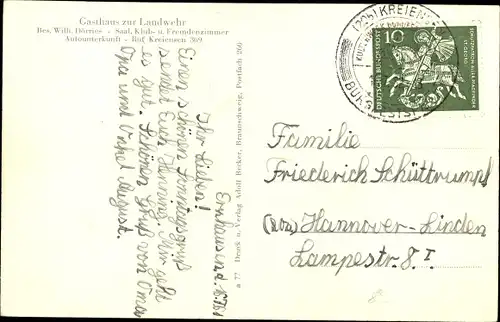 Gasthaus zur Landwehr
Bes. Willi Dörries - Saal, Klub- u. Fremdenzimmer
Autounterkunft - Ruf Kreiensen 369
Ernhausen d.
Ihr Lieben!
Einen schönen Sonntagsgruß
sendet Euch Henning. Mir geht
es gut. Schönen Gruß von Oma
Opa und Onkel August.
a 77 Druck u. Verlag Adolf Becker, Braunschweig, Postfach 260
(20b) KREIENSEN
10
DEUTSCHE BUNDESPOST
Familie
Friederich Schüttrumpf
(20a) Hannover-Linden
Lampestr. 8 I